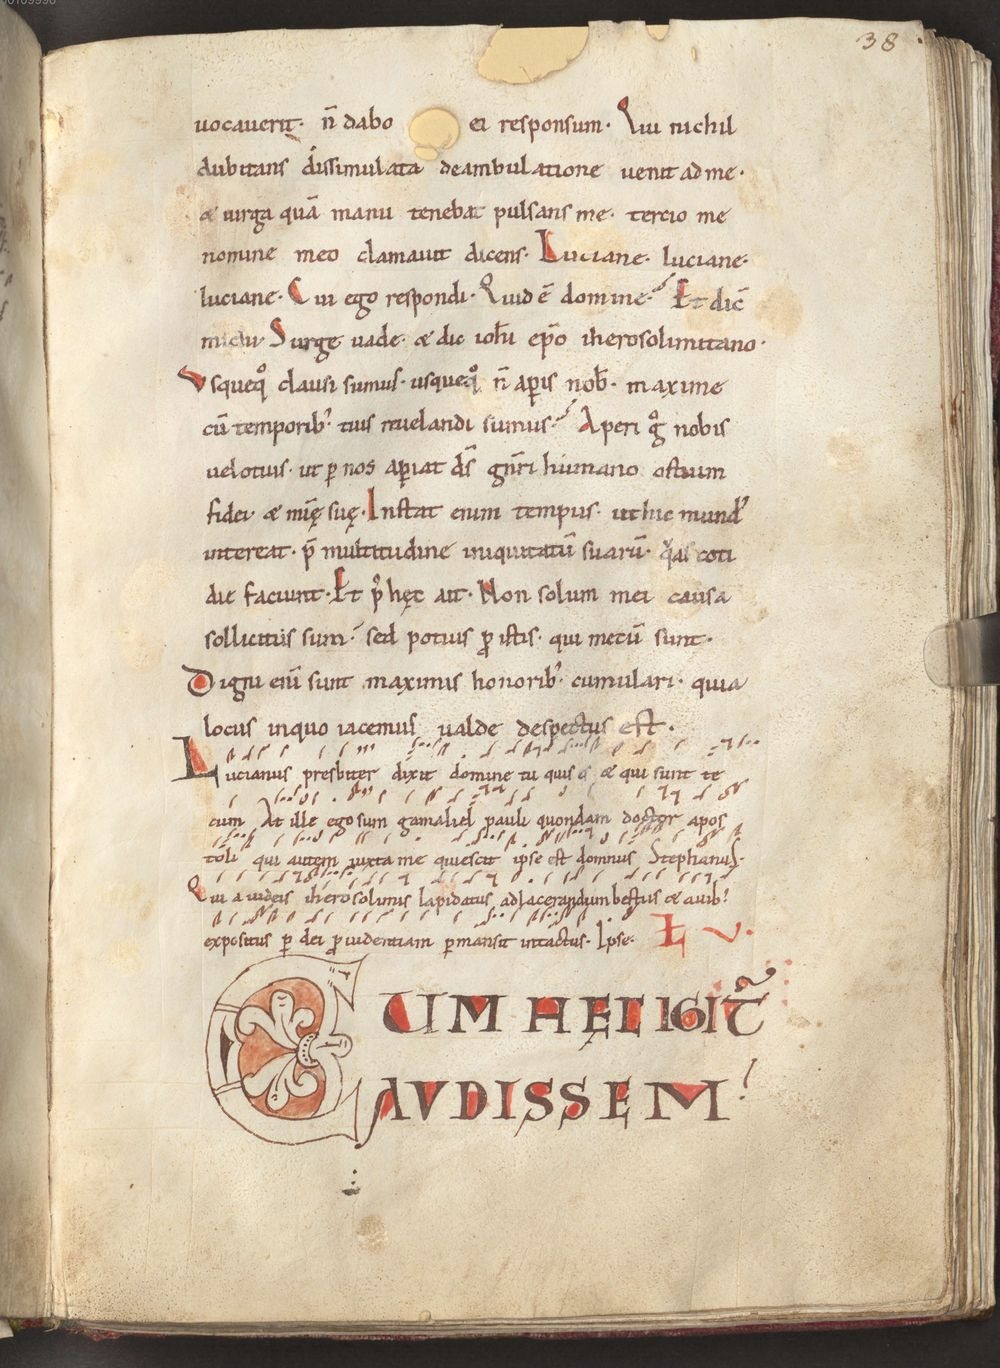 38
uocauerit· n̄ dabo ei responsum· Qui nichil
dubitans dissimulata deambulatione uenit ad me·
& uirga quā manu tenebat pulsans me· tercio me
nomine meo clamauit dicens· Luciane· luciane·
luciane· Cui ego respondi· Quid ē domine? Et dic̄
michi· Surge uade· & dic ioh̄i ep̄o iherosolimitano·
Vsquequo clausi sumus· usquequo n̄ apis nob̄· maxime
cū temporib; tuis reuelandi sumus? Aperi g° nobis
uelotius· ut p̱ nos apiat d̄s gn̄ri humano ostium
fidei· & mīę suę· Instat enim tempus· ut hic mund'
intereat· p̄ multitudine iniquitatū suarū· q̄as coti
die faciunt· Et p° hęc ait· Non solum mei causa
sollicitus sum· sed potius p̱ istis· qui mecū sunt·
Digni enī sunt maximis honorib; cumulari· quia
locus inquo iacemus ualde despectus est·
Lucianus presbiter dixit domine tu quis es & qui sunt te
cum At ille ego sum gamaliel pauli quondam doctor apos
toli qui autem iuxta me quiescit ipse est domnus Stephanus·
Qui a iudeis iherosolimis lapidatus adlacerandum bestiis & auib;
expositus p̱ dei p̱uidentiam p̱mansit intactus· Ipse· L V·
CUM HĘC IGIT̄
AVDISSEM